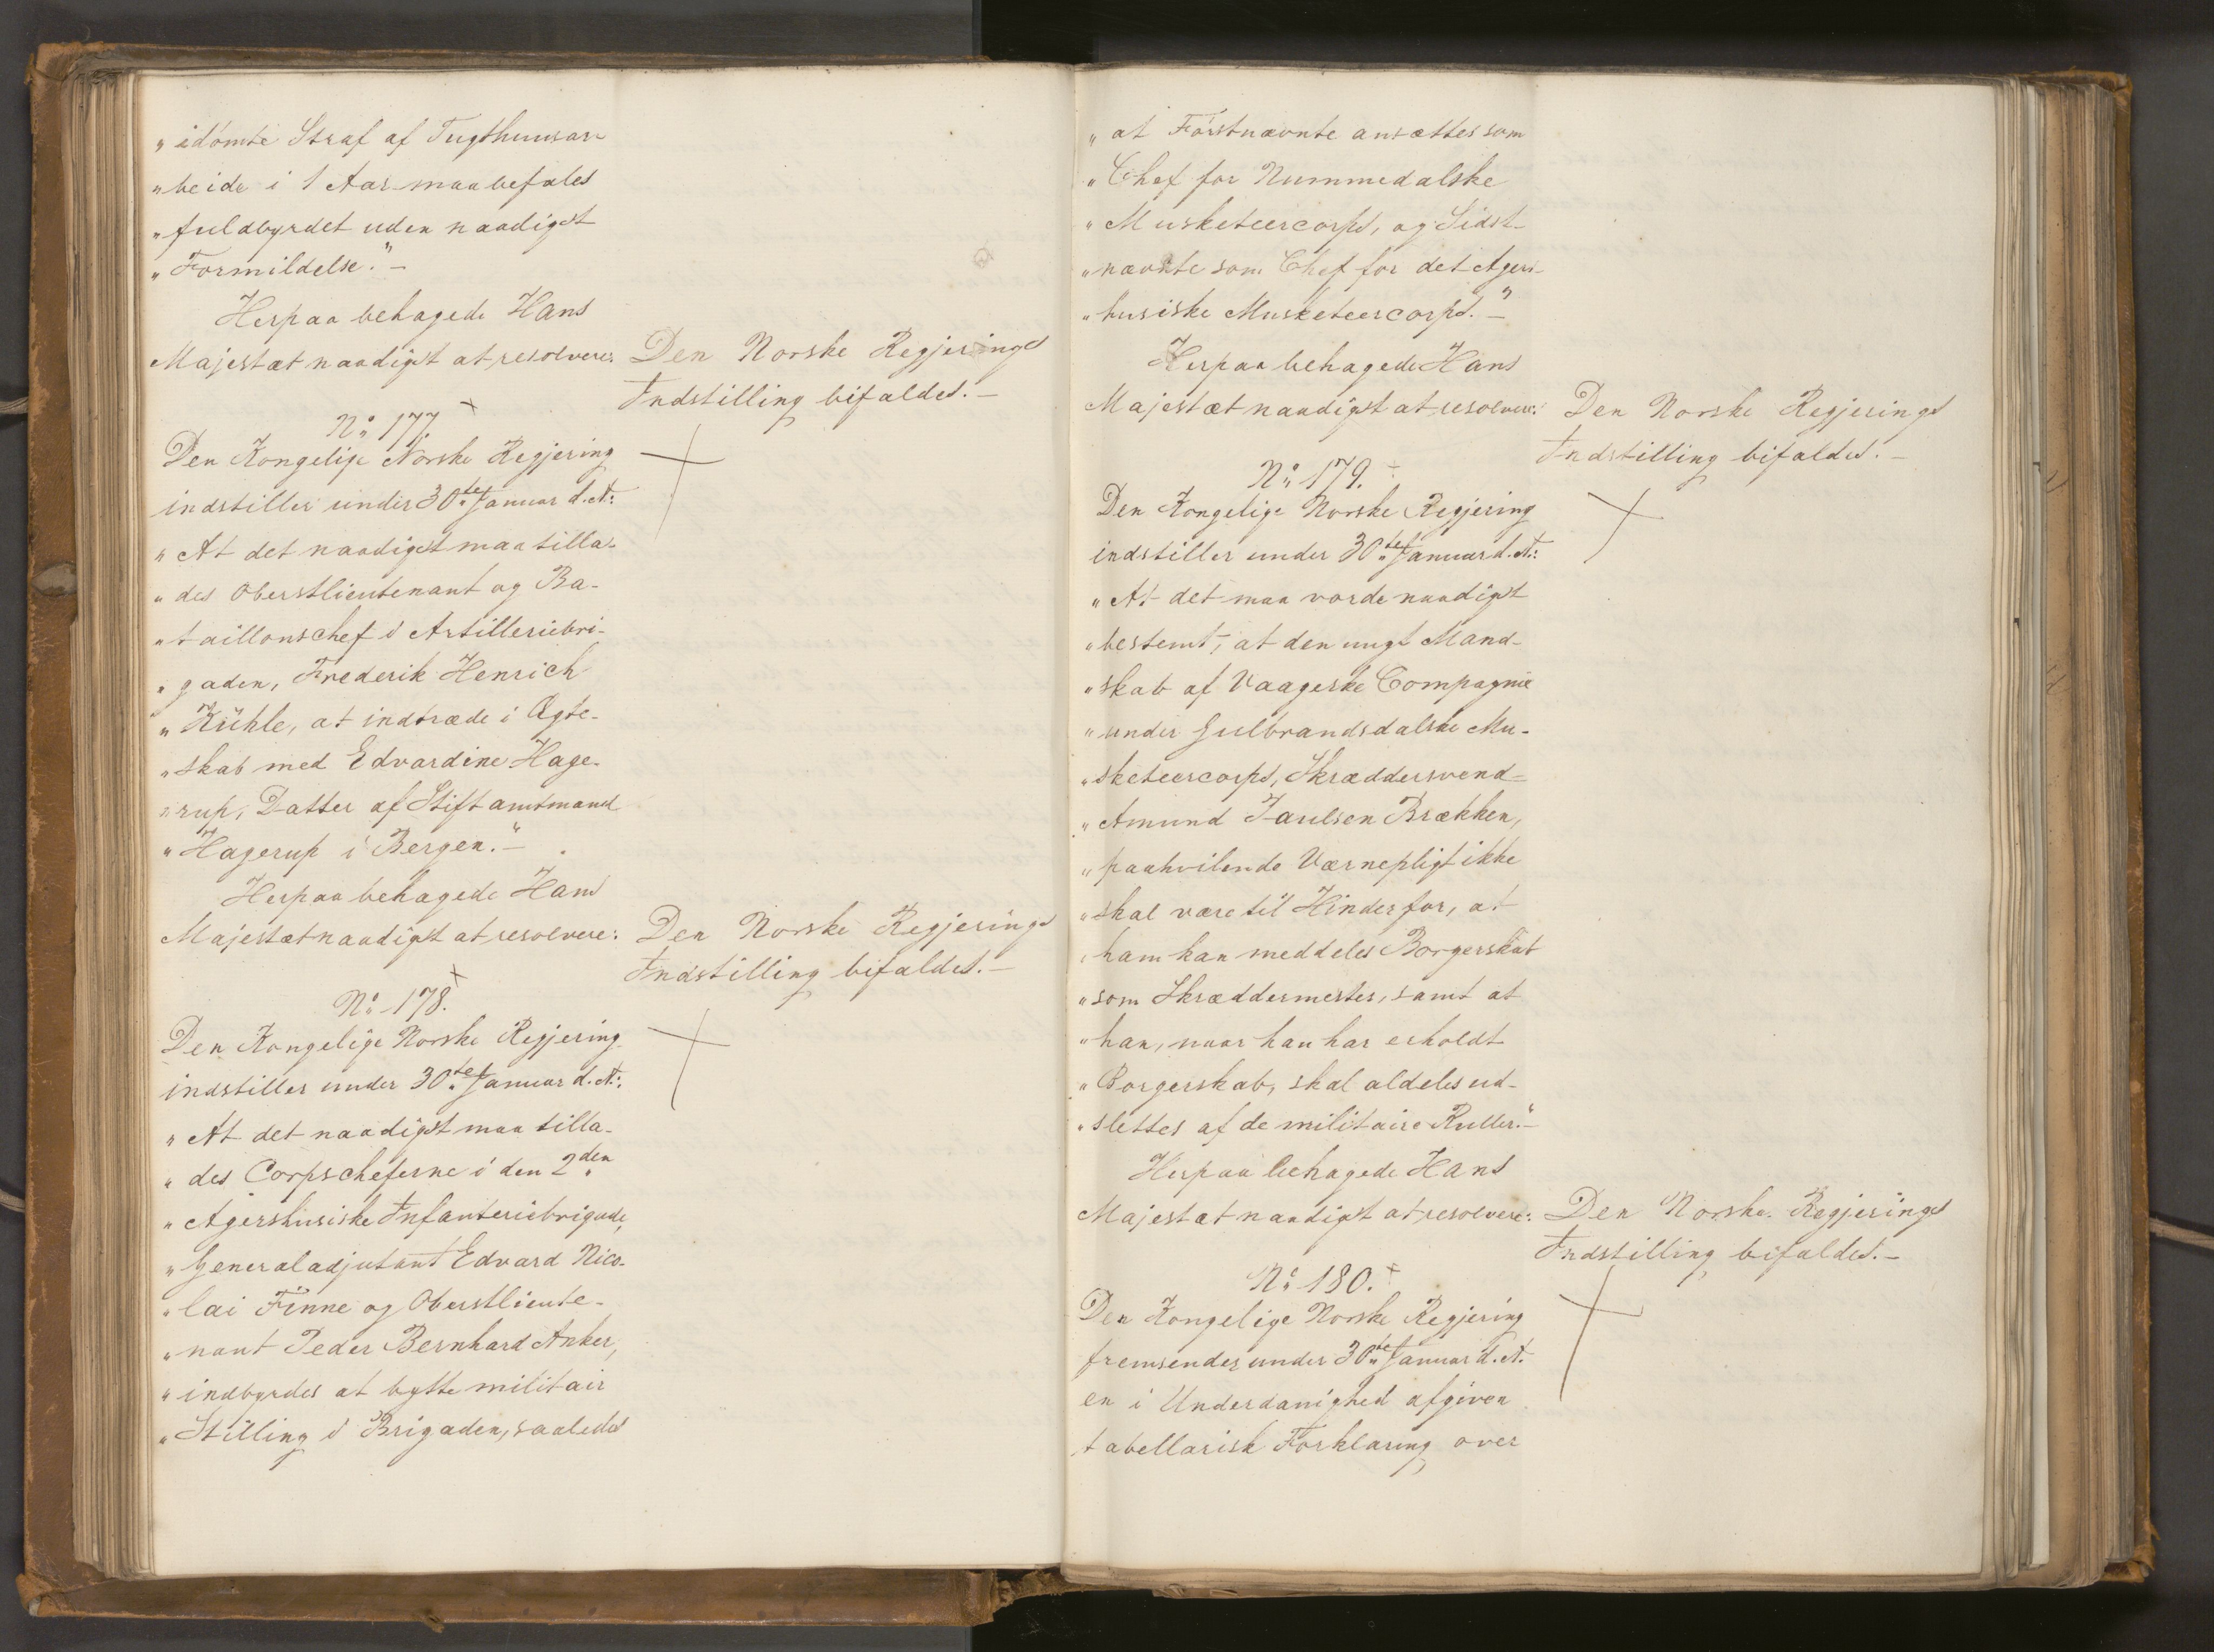 „idömte Straf af Tugthuusar-
„beide i 1 Aar maa befales
„fuldbyrdet uden naadigst
„Formildelse.“ –
Herpaa behagede Hans
Majestæt naadigst at resolvere: Den Norske Regjerings
Indstilling bifaldes. –
No 177.
Den Kongelige Norske Regjering
indstiller under 30te Januar d. A:
„At det naadigst maa tilla-
„des Oberstlieutenant og Ba-
„taillonschef i Artilleriebri-
„gaden, Frederik Henrich
„Kühle, at indtræde i Ægte-
„skab med Edvardine Hage-
„rup, Datter af Stiftamtmand
„Hagerup i Bergen.“ –
Herpaa behagede Hans
Majestæt naadigst at resolvere: Den Norske Regjerings
Indstilling bifaldes. –
No 178.
Den Kongelige Norske Regjering
indstiller under 30te Januar d. A:
„At det naadigst maa tilla-
„des Corpscheferne i den 2den
„Agershusiske Infanteriebrigade,
„Generaladjutant Edvard Nico-
„lai Finne og Oberstlieute-
„nant Peder Bernhard Anker,
„indbyrdes at bytte militair
„Stilling i Brigaden, saaledes
„at Förstnævnte ansættes som
„Chef for Nummedalske
„Musketeercorps, og Sidst-
„nævnte som Chef for det Agers-
„husiske Musketeercorps.“ –
Herpaa behagede Hans
Majestæt naadigst at resolvere: Den Norske Regjerings
Indstilling bifaldes. –
No 179.
Den Kongelige Norske Regjering
indstiller under 30te Januar d. A:
„At det maa vorde naadigst
„bestemt, at den ungt Mand-
„skab af Vaageske Compagnie
„under Gulbrandsdalske Mu-
„sketeercorps, Skræddersvend
„Amund Paulsen Brækken,
„paahvilende Værnepligt ikke
„skal være til Hinder for, at
„ham kan meddeles Borgerskab
„som Skræddermester, samt at
„han, naar han har erholdt
„Borgerskab, skal aldeles ud-
„slettes af de militaire Ruller.“ –
Herpaa behagede Hans
Majestæt naadigst at resolvere: Den Norske Regjerings
Indstilling bifaldes. –
No 180.
Den Kongelige Norske Regjering
fremsender under 30te Januar d. A.
en i Underdanighed afgiven
tabellarisk Forklaring over